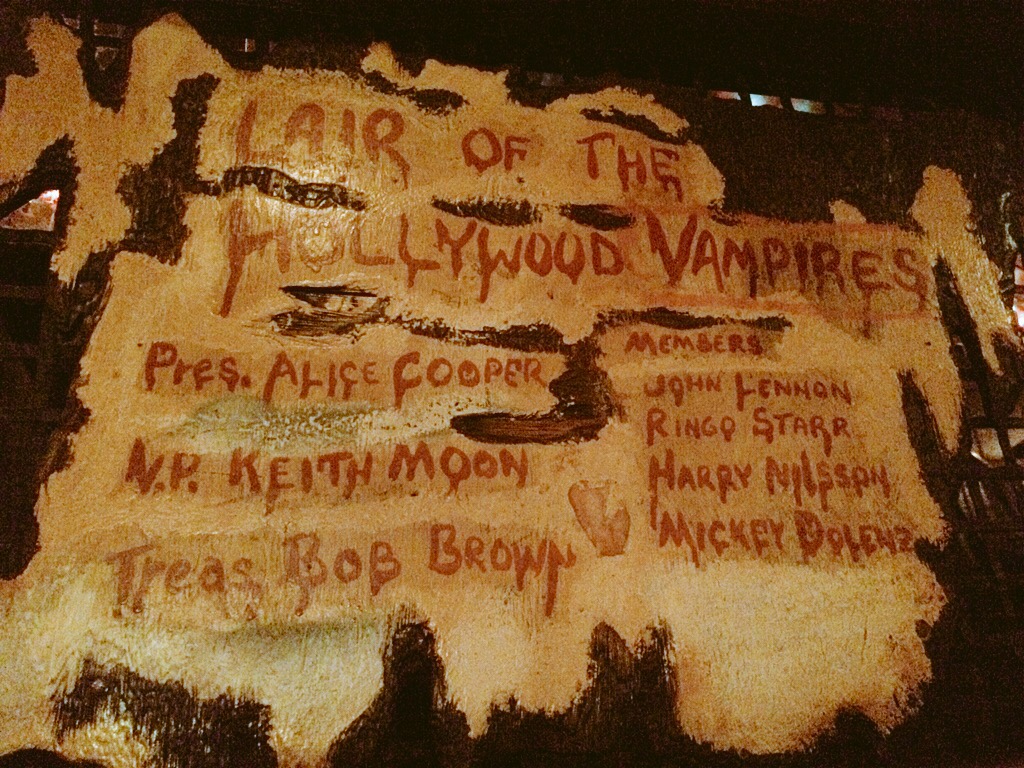 LAIR OF THE
HOLLYWOOD VAMPIRES
Pres. ALICE COOPER
V.P. KEITH MOON
Treas. BOB BROWN
MEMBERS
JOHN LENNON
RINGO STARR
HARRY NILSSON
MICKEY DOLENZ